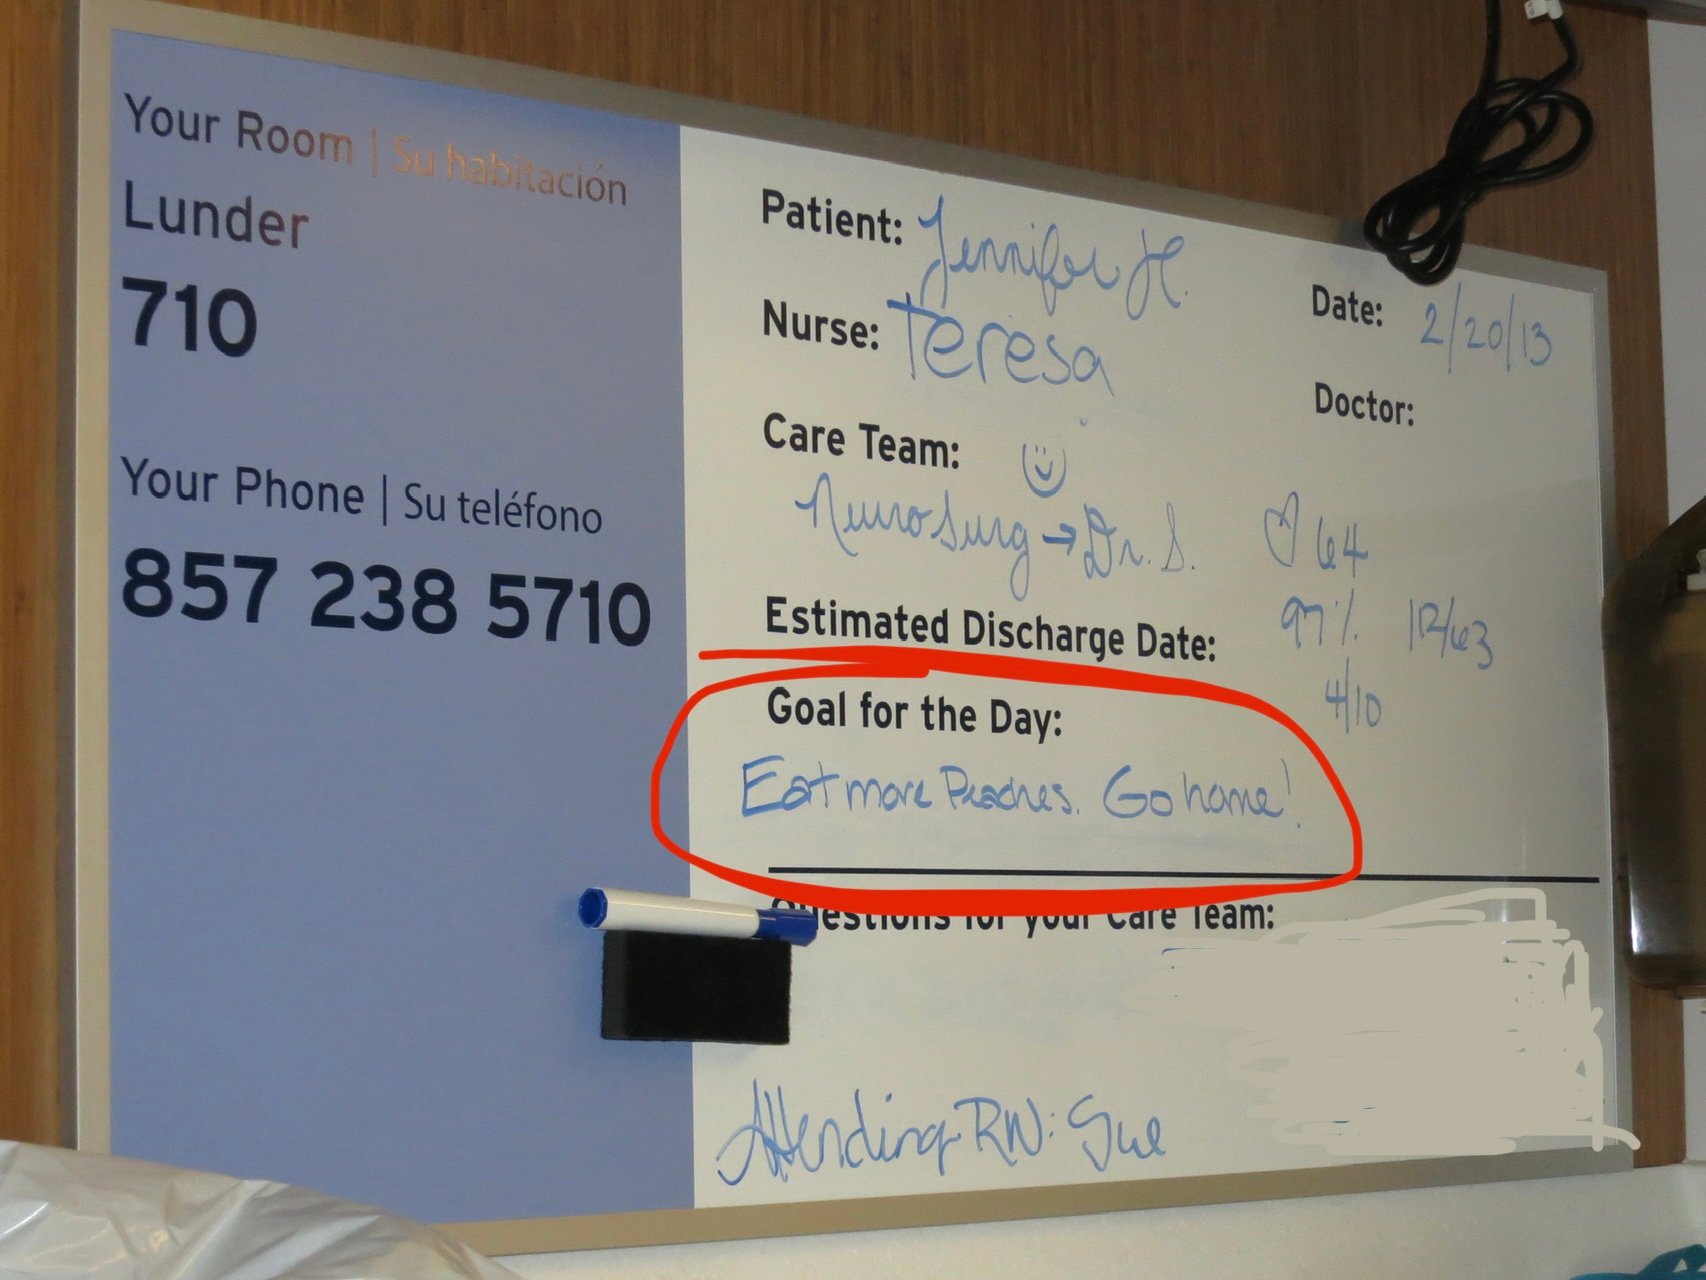 Your Room | Su habitación
Lunder
710
Your Phone | Su teléfono
857 238 5710
Patient: Jennifer H.
Date: 2/20/13
Nurse: Teresa
Doctor:
Care Team:
NeuroSurg → Dr. S.
64
Estimated Discharge Date:
97% 112/63
4/10
Goal for the Day:
Eat more Peaches. Go home!
Questions for your Care Team:
Attending RN: Sue